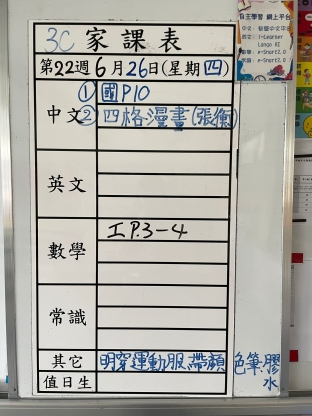 自主學習 網上平台
3C 家課表
第22週6月26日(星期四)
中文 ①國P10
②四格漫畫(張衡)
英文
數學 工P.3-4
常識
其它 明穿運動服,帶顏色筆.膠水
值日生